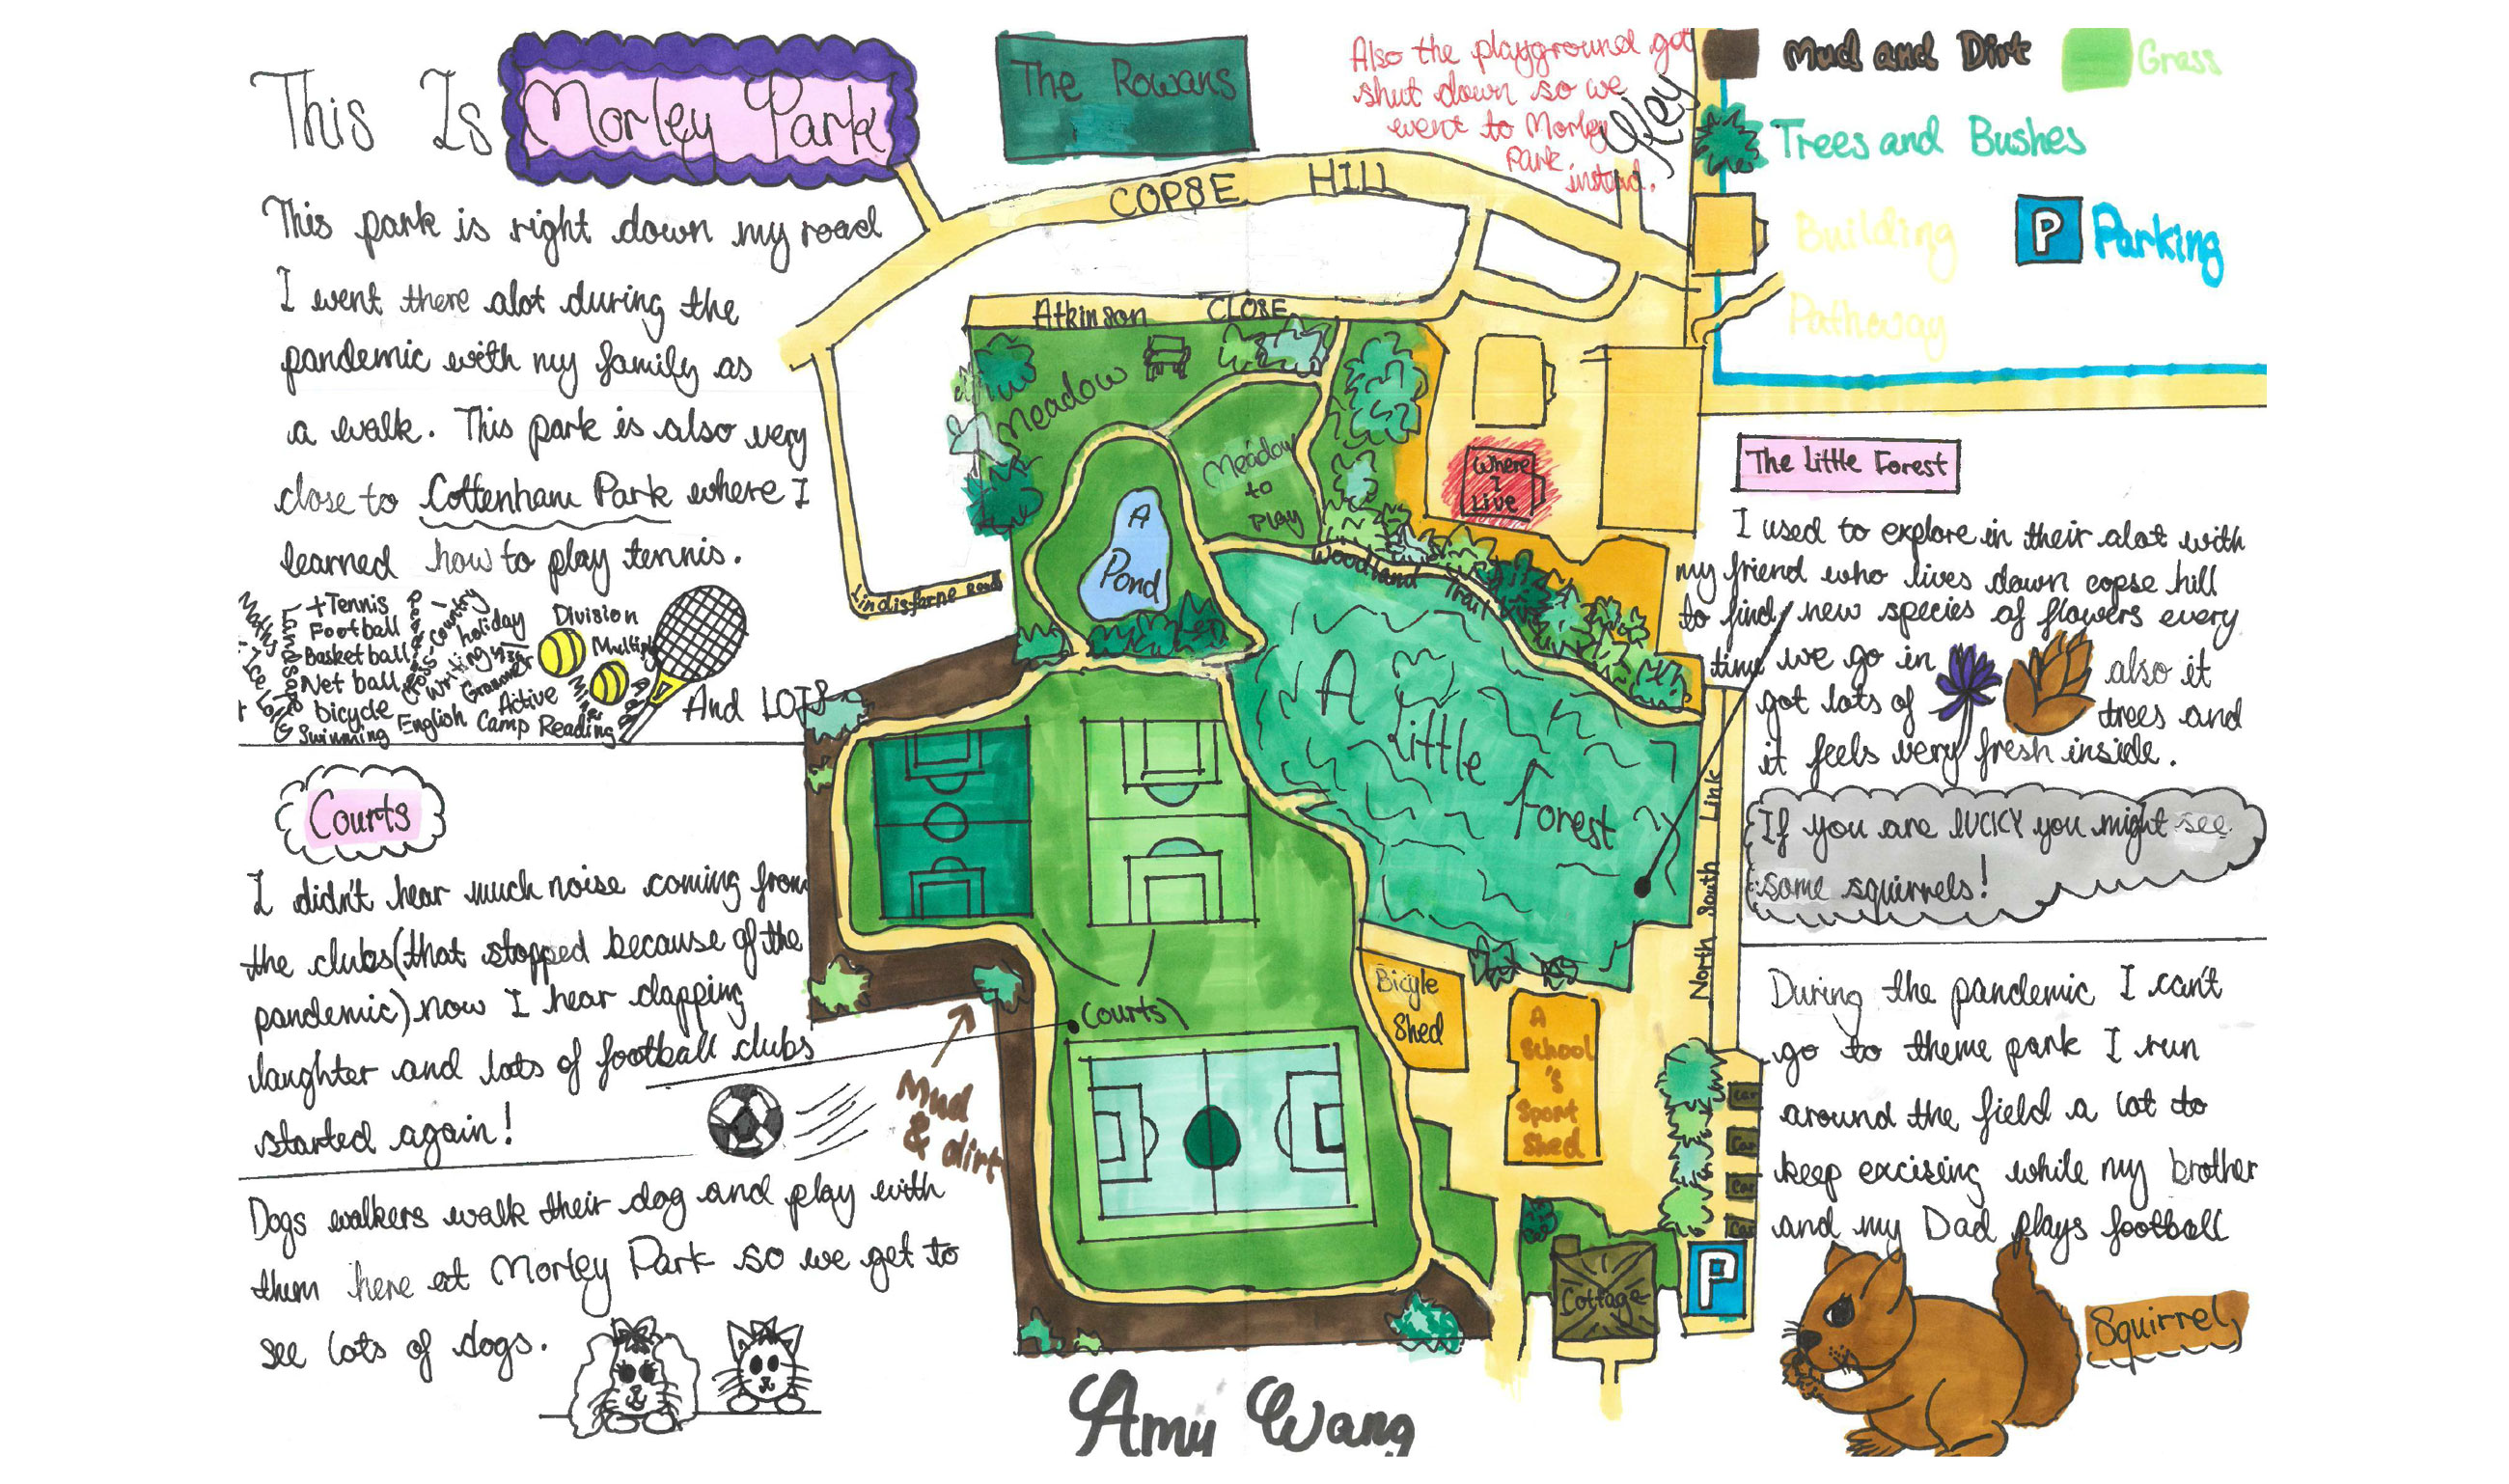 This Is Morley Park
This park is right down my road
I went there alot during the
pandemic with my family as
a walk. This park is also very
close to Cottenham Park where I
learned how to play tennis.
+Tennis
Football
Basketball
Net ball
bicycle
Swimming
cross country
holiday
Writing
Grammer
Active
English Camp Reading
Division
And LOTS
Courts
I didn't hear much noise coming from
the clubs(that stopped because of the
pandemic) now I hear clapping
laughter and lots of football clubs
started again!
Dogs walkers walk their dog and play with
them here at Morley Park so we get to
see lots of dogs.
The Rowans
Also the playground got
shut down so we
went to Morley
Park
instead.
COPSE HILL
Atkinson CLOSE
Meadow
Meadow
to
play
A
Pond
Where
I
Live
Lindisfarne Road
Woodland Trail
A Little Forest
Courts
Mud
& dirt
Bicyle
Shed
A
School
's
Sport
Shed
North South Link
Car
Car
Car
Car
P
Cottage
Amy Wang
Key
Mud and Dirt
Grass
Trees and Bushes
Building
P Parking
Pathway
The Little Forest
I used to explore in their alot with
my friend who lives down copse hill
to find new species of flowers every
time we go in also it
got lots of trees and
it feels very fresh inside.
If you are lUCKY you might see
some squirrels!
During the pandemic I can't
go to theme park I run
around the field a lot to
keep exciseing while my brother
and my Dad plays football
Squirrel